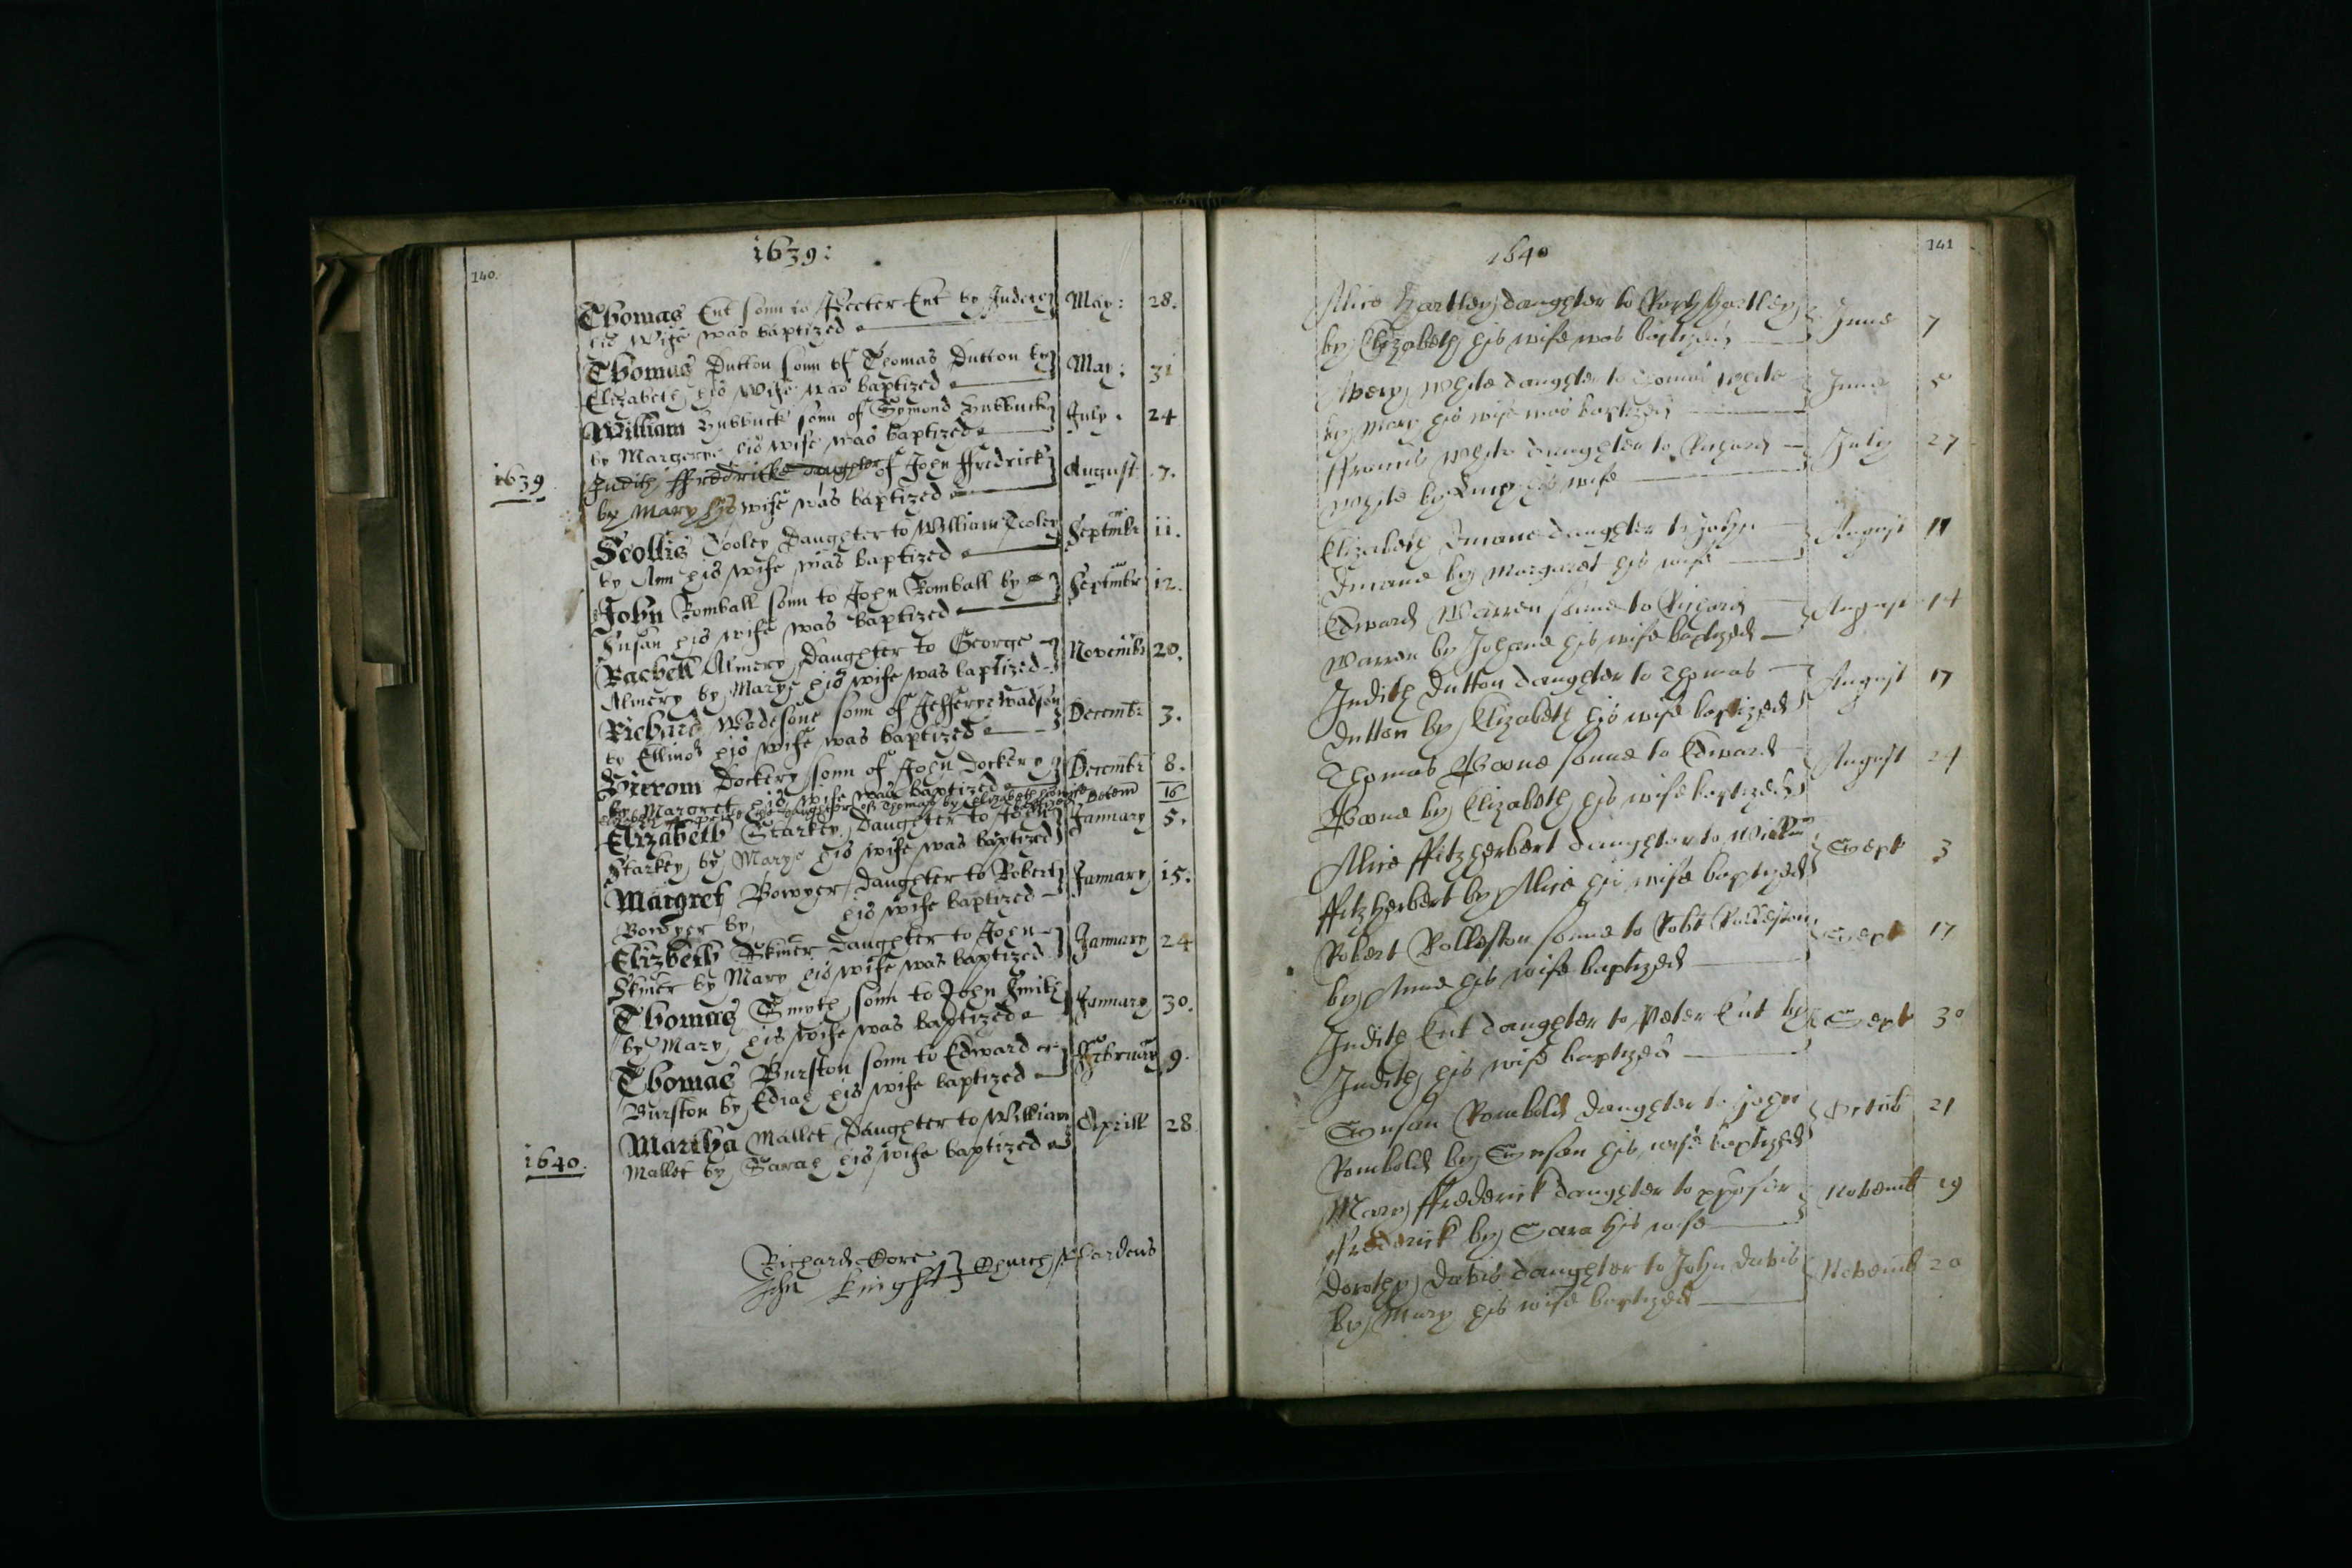 140.
1639:
Thomas Ent sonn to Peeter Ent by Judeth May: 28.
his Wife was baptized
Thomas Dutton sonn of Thomas Dutton by May: 31
Elizabeth his Wife was baptized
William Hubbuck sonn of Symond Hubbuck July. 24
by Margerye his wife was baptized
1639
Judith ffredricke daughter of John ffredrick August 7.
by Mary his wife was baptized
Scollis Cooley Daughter to William Cooley Septmbr 11.
by Ann his wife was baptized
John Romball sonn to John Romball by Septmbr 12.
Susan his wife was baptized
Rachell Almery Daughter to George Novembr 20.
Almery by Marye his wife was baptized
Richard Wadesone sonn of Jefferye Wadson Decembr 3.
by Ellinor his wife was baptized
Hierom Dockery sonn of John Dockery Decembr 8.
by Margret his wife was baptized
daughter of Thomas by Elizabeth his wife baptized Decem 16
Elizabeth Starkey Daughter to John January 5.
Starkey by Marye his wife was baptized
Margret Bowyer Daughter to Robert January 15.
Bowyer by his wife baptized
Elizbeth Skiner Daughter to John January 24
Skiner by Mary his wife was baptized
Thomas Smyth sonn to John Smith January 30.
by Mary his wife was baptized
Thomas Burston sonn to Edward ffebruary 9.
Burston by Ediah his wife baptized
Martha Mallet Daughter to William Aprill 28
1640.
Mallet by Sarah his wife baptized
Richard Gore
John Knight Church Wardens
141
1640
Alice Hartley daughter to Raph Hartley June 7
by Elizabeth his wife was baptized
Mary White daughter to Thomas White June
by Mary his wife was baptized
ffrancis White daughter to Richard July 27
White by Lucy his wife
Elizabeth Inmane daughter to John August 11
Inmane by Margaret his wife
Edward Warren sonne to Richard August 14
Warren by Johane his wife baptized
Judith Dutton daughter to Thomas August 17
Dutton by Elizabeth his wife baptized
Thomas Boone sonne to Edward August 24
Boone by Elizabeth his wife baptized
Alice ffitzherbert daughter to Willm Sept 3
ffitzherbert by Alice his wife baptized
Robert Rolleston sonne to Robt Rolleston Sept 17
by Anne his wife baptized
Judith Ent daughter to Peter Ent by Sept 30
Judith his wife baptized
Susan Rombold daughter to John Octob 21
Rombold by Susan his wife baptized
Mary ffrederick daughter to Novemb 19
ffrederick by Sara his wife
Dorothy Davis daughter to John Davis Novemb 20
by Mary his wife baptized